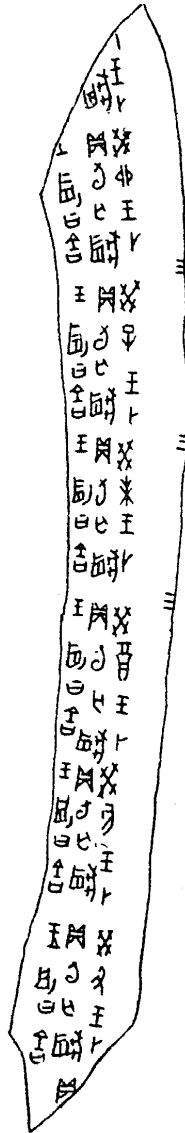 王卜
𡆥
癸卯王卜
貞旬亡𡆥
王𠱠曰吉
癸巳王卜
貞旬亡𡆥
王𠱠曰吉
癸未王卜
貞旬亡𡆥
王𠱠曰吉
癸酉王卜
貞旬亡𡆥
王𠱠曰吉
癸亥王卜
貞旬亡𡆥
王𠱠曰吉
癸丑王卜
貞旬亡𡆥
王𠱠曰吉
貞